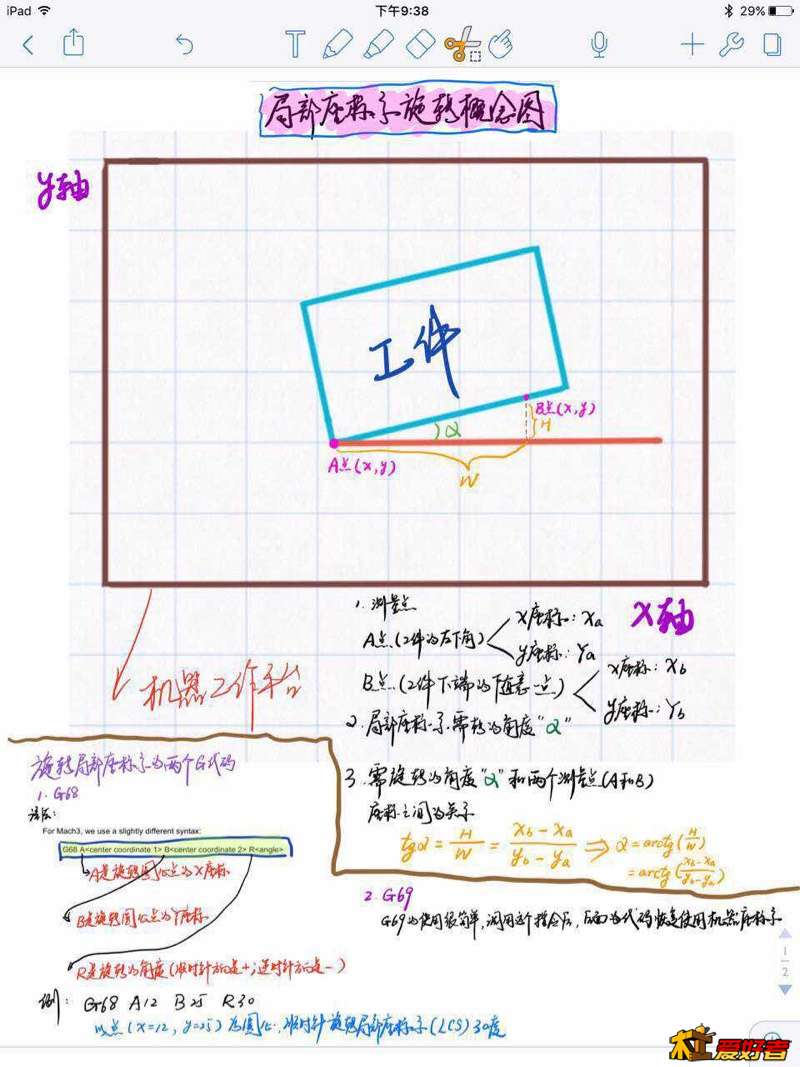 iPad
下午9:38
29%
局部座标系旋转概念图
y轴
工件
B点(x,y)
α
H
A点(x,y)
W
X轴
机器工作平台
1. 测量点
A点(工件的左下角)
x座标: Xa
y座标: Ya
B点(工件下端的随意一点)
x座标: Xb
y座标: Yb
2. 局部座标系需转的角度"α"
3. 需旋转的角度"α"和两个测量点(A和B)
座标之间的关系
tgα = H/W = (Xb-Xa)/(Yb-Ya) ⇒ α=arctg(H/W)
=arctg(Xb-Xa/Yb-Ya)
旋转局部座标系的两个G代码
1. G68
语法:
For Mach3, we use a slightly different syntax:
G68 A<center coordinate 1> B<center coordinate 2> R<angle>
A是旋转圆心点的X座标
B是旋转圆心点的Y座标
R是旋转的角度(顺时针方向是+;逆时针方向是-)
例: G68 A12 B25 R30
以点(x=12, y=25)为圆心,顺时针旋转局部座标系(LCS)30度
2. G69
G69的使用很简单,调用这个指令后,后面的代码恢复使用机器座标系
1
2
爱好者